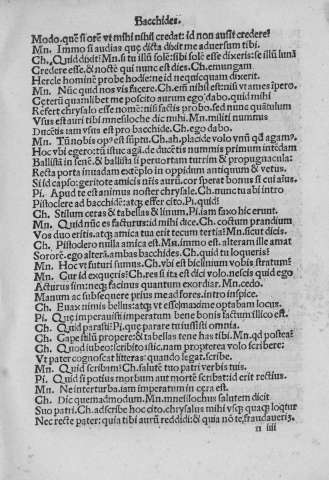 Bacchides.
Modo. quē si orē vt mihi nihil credat: id non ausit credere?
Mn. Immo si audias quę dicta dixit me aduersum tibi.
Ch. Quid dixit? Mn. si tu illū solē: sibi solē esse dixeris: se illū lunā
Credere esse. & noctē qui nunc est dies. Ch. emungam
Hercle hominē probe hodie: ne id nequicquam dixit.
Mn. Nūc quid nos vis facere. Ch. em nihil est: nisi vt ames īpero.
Ceterū quamlibet me poscito aurum ego dabo. quid mihi
Refert chrysalo esse nomē: nisi factis probo. sed nunc quātulum
Vsus est auri tibi mnesiloche dic mihi. Mn. militi nummus
Ducētis iam vsus est pro bacchide. Ch. ego dabo.
Mn. Tū nobis op⁹ est sūptu. Ch. ah, placide volo vnū qd agam?
Hoc vbi egero: tū istuc agā. de ducētis nummis primum intedam
Ballistā in senē. & ballista si peruortam turrim & propugnacula:
Recta porta inuadam extēplo in oppidum antiquum & vetus.
Si id capso: geritote amicis nr̄is aurū. cor sperat
Pi. Apud te est animus noster chrysale. Ch. nunc tu abi intro
Pistoclere ad bacchidē: atq; effer cito. Pi. quid?
Ch. Stilum ceras & tabellas & linum. Pi. iam faxo hic erunt.
Mn. Quid nūc es facturus: id mihi dice. Ch. coctum prandium
Vos duo eritis. atq; amica tua erit tecum tertia? Mn. sicut dicis.
Ch. Pistoclero nulla amica est. Mn. immo est. alteram ille amat
Sororē. ego alterā. ambas bacchides. Ch. quid tu loqueris?
Mn. Hoc vt futuri sumus. Ch. vbi est biclinium vobis stratum?
Mn. Cur id exqueris? Ch. res si ita est dici volo. nescis quid ego
Acturus sim: neq; facinus quantum exordiar. Mn. cedo.
Manum ac subsequere prius me ad fores. intro inspice.
Ch. Euax nimis bellus: atq; vt esse maxime optabam locus.
Pi. Quę imperauisti: imperatum bene bonis factum illico est.
Ch. Quid parasti? Pi. quę parare tu iussisti omnia.
Ch. Cape stilū propere: & tabellas tene has tibi. Mn. qd postea?
Ch. Quod iubeo: scribito istic. nam propterea volo scribere:
Vt pater cognoscat litteras: quando legat. scribe.
Mn. Quid scribam? Ch. salutē tuo patri verbis tuis.
Pi. Quid si potius morbum aut mortē scribat: id erit rectius.
Mn. Ne interturba. iam imperatum in cera est.
Ch. Dic quemadmodum. Mn. mnesilochus salutem dicit
Suo patri. Ch. adscribe hoc cito. chrysalus mihi vsq; quaq; loq̄tur
Nec recte pater: quia tibi aurū reddidi: & quia nō te, fraudauerī.
n iiii